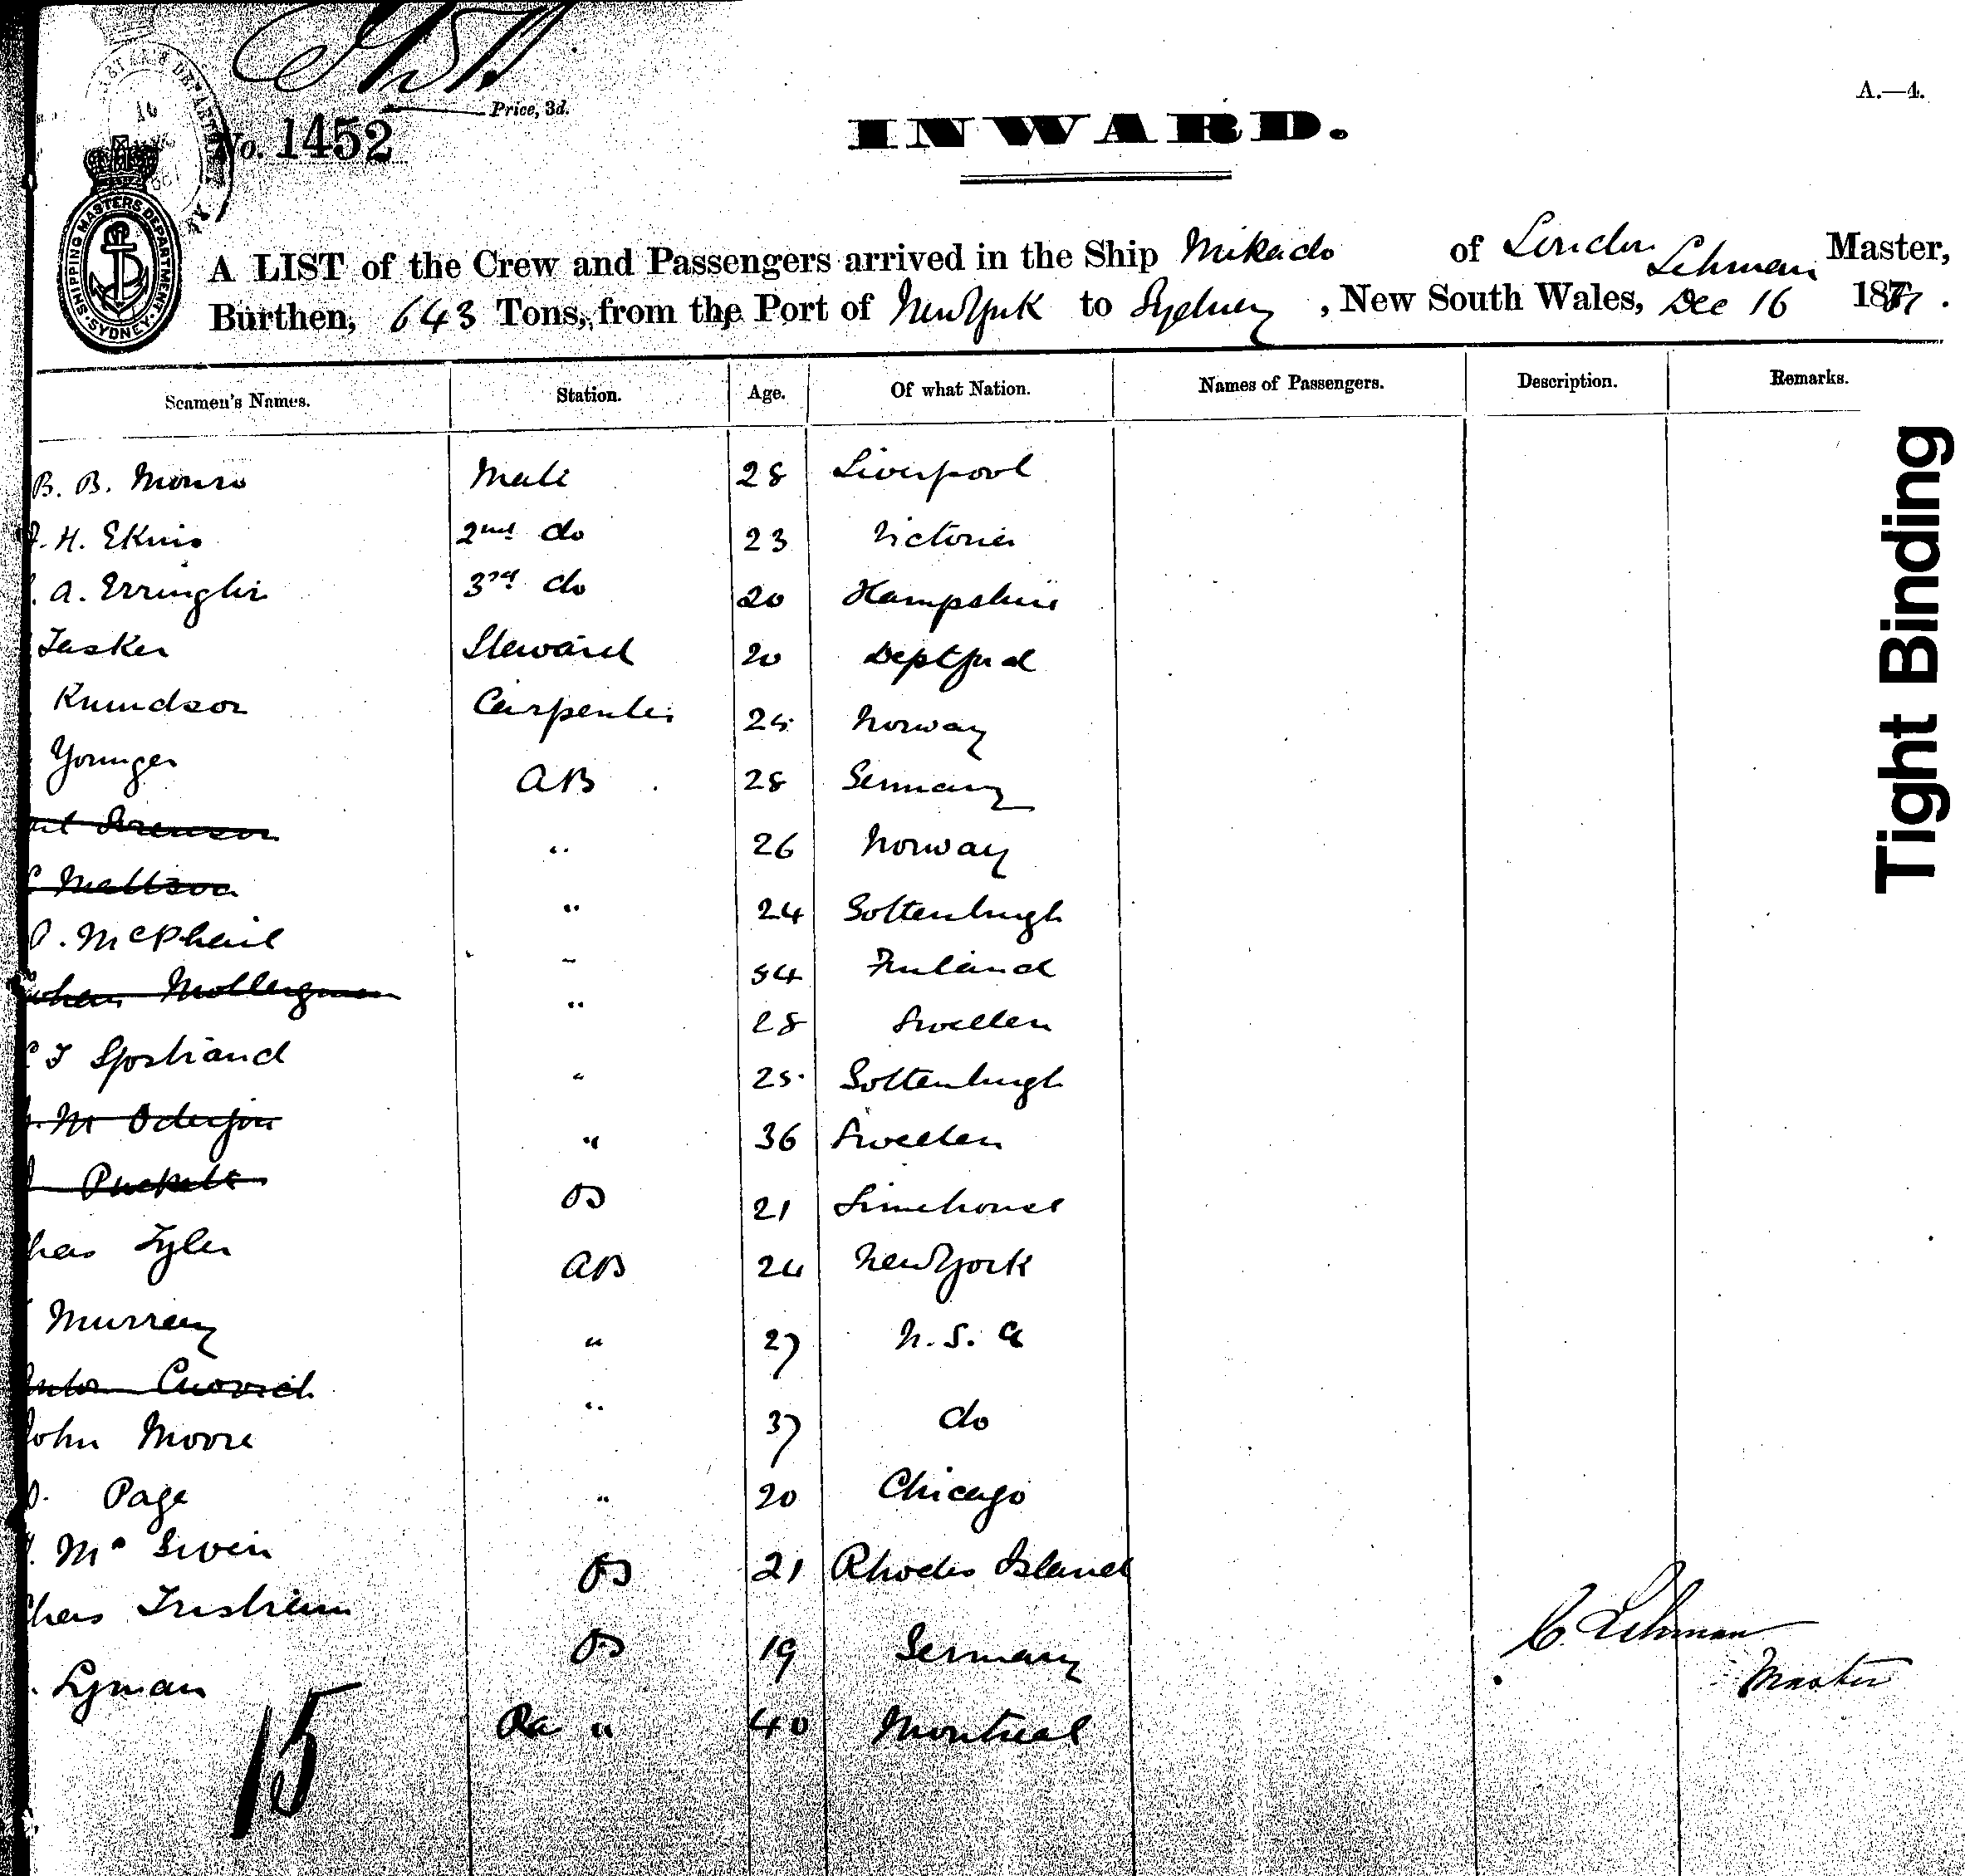 A.—4.
Price, 3d.
No. 1452
INWARD.
SHIPPING MASTERS DEPARTMENT SYDNEY
A LIST of the Crew and Passengers arrived in the Ship Mikado of London Lehman Master,
Burthen, 643 Tons, from the Port of New York to Sydney, New South Wales, Dec 16 187
Seamen's Names. Station. Age. Of what Nation. Names of Passengers. Description. Remarks.
B. B. Monro Mate 28 Liverpool
H. Ekins 2nd do 23 Victoria
A. Erringtin 3rd do 20 Hampshire
Tasker Steward 20 Deptford
Knundson Carpenter 25 Norway
Younger AB 28 Germany
Sorenson " 26 Norway
Mattson " 24 Gottenburgh
McPhail " 54 Finland
" 28 Sweeden
" 25 Gottenburgh
M " 36 Sweeden
Puckett OS 21 Limehouse
Chas Tyler AB 24 New York
Murray " 27
" 37 do
John Moore
Page " 20 Chicago
OS 21 Rhodes Island
Chas Tristram
OS 19 Germany
Lyman
" 40 Montreal
15
C. Lehman
Master
Tight Binding